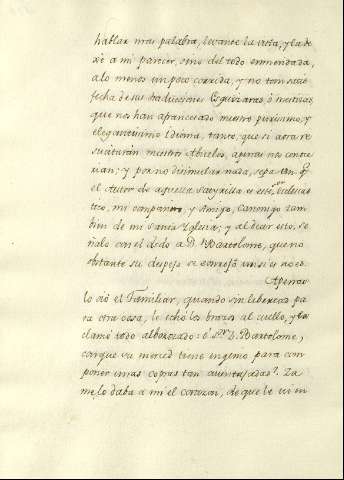 hablar mas palabra, levantè la vista, y la de
xè a mi parecer, sino del todo enmendada,
a lo menos un poco corrida, y no tan satis
fecha de sus traducciones Esguizaras, ò mestizas,
que nos han afrancesado nuestro purissimo, y
elegantissimo Idioma, tanto, que si aora re
sucitaran nuestros Abuelos, apenas nos conoce
rian; y por no disimular nada, sepa Vm. q.
el Autor de aquella Satyrilla es este Eclesias
tico, mi compañero, y Amigo, Canonigo tam
bien de mi Santa Yglesia; y al decir esto, se
ñalo con el dedo a D. Bartolome, que no
obstante su despejo se sonrojò un si es no es.
Apenas
lo oiò el Familiar, quando sin libertad pa
ra otra cosa, le echò los brazos al cuello, y ex
clamò todo alborozado: ò Sr. D. Bartolome,
conque su merced tiene ingenio para com
poner unas copras tan aventajadas? Ya
me lo daba a mi el corazon, desque le vi en